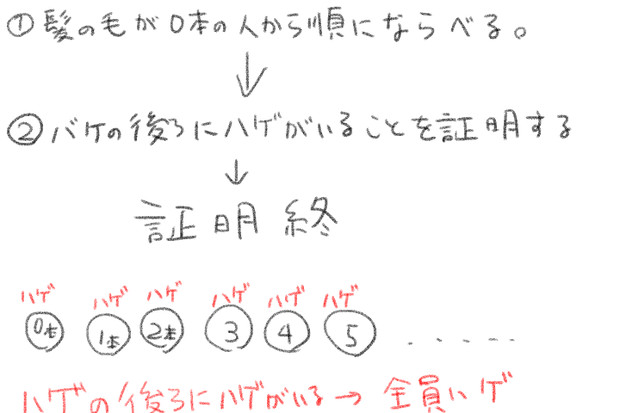 ①髪の毛が0本の人から順にならべる。
↓
②ハゲの後ろにハゲがいることを証明する
↓
証明終
ハゲ ハゲ ハゲ ハゲ ハゲ ハゲ
0本 1本 2本 3 4 5 ......
ハゲの後ろにハゲがいる→全員ハゲ